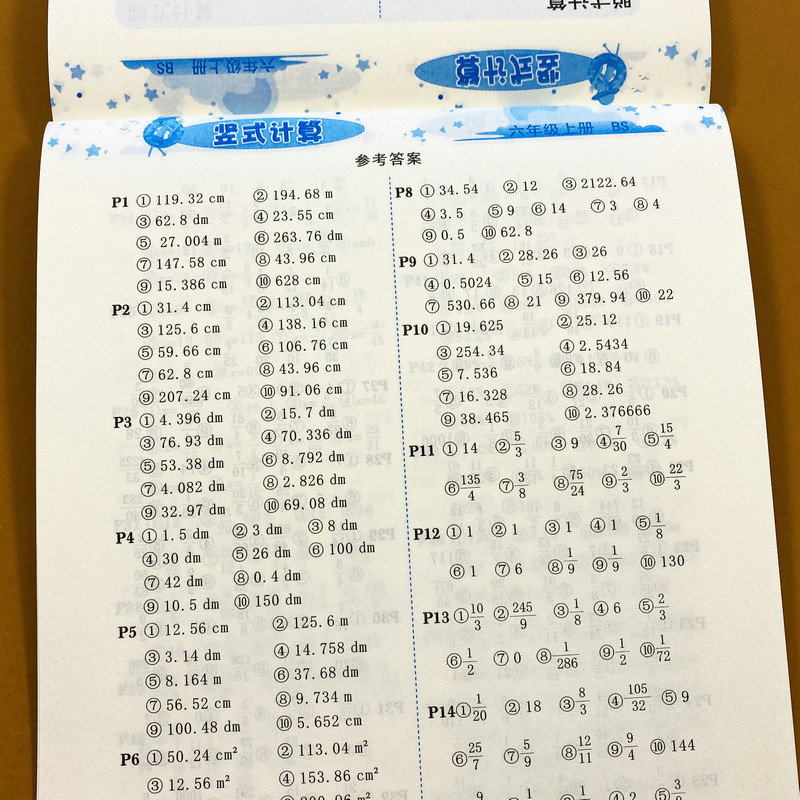 竖式计算
六年级上册 BS
竖式计算
六年级上册 BS
参考答案
P1 ① 119.32 cm ② 194.68 m
③ 62.8 dm ④ 23.55 cm
⑤ 27.004 m ⑥ 263.76 dm
⑦ 147.58 cm ⑧ 43.96 cm
⑨ 15.386 cm ⑩ 628 cm
P2 ① 31.4 cm ② 113.04 cm
③ 125.6 cm ④ 138.16 cm
⑤ 59.66 cm ⑥ 106.76 cm
⑦ 62.8 cm ⑧ 43.96 cm
⑨ 207.24 cm ⑩ 91.06 cm
P3 ① 4.396 dm ② 15.7 dm
③ 76.93 dm ④ 70.336 dm
⑤ 53.38 dm ⑥ 8.792 dm
⑦ 4.082 dm ⑧ 2.826 dm
⑨ 32.97 dm ⑩ 69.08 dm
P4 ① 1.5 dm ② 3 dm ③ 8 dm
④ 30 dm ⑤ 26 dm ⑥ 100 dm
⑦ 42 dm ⑧ 0.4 dm
⑨ 10.5 dm ⑩ 150 dm
P5 ① 12.56 cm ② 125.6 m
③ 3.14 dm ④ 14.758 dm
⑤ 8.164 m ⑥ 37.68 dm
⑦ 56.52 cm ⑧ 9.734 m
⑨ 100.48 dm ⑩ 5.652 cm
P6 ① 50.24 cm² ② 113.04 m²
③ 12.56 m² ④ 153.86 cm²
P8 ① 34.54 ② 12 ③ 2122.64
④ 3.5 ⑤ 9 ⑥ 14 ⑦ 3 ⑧ 4
⑨ 0.5 ⑩ 62.8
P9 ① 31.4 ② 28.26 ③ 26
④ 0.5024 ⑤ 15 ⑥ 12.56
⑦ 530.66 ⑧ 21 ⑨ 379.94 ⑩ 22
P10 ① 19.625 ② 25.12
③ 254.34 ④ 2.5434
⑤ 7.536 ⑥ 18.84
⑦ 16.328 ⑧ 28.26
⑨ 38.465 ⑩ 2.376666
P11 ① 14 ② 5/3 ③ 9 ④ 7/30 ⑤ 15/4
⑥ 135/4 ⑦ 3/8 ⑧ 75/24 ⑨ 2/3 ⑩ 22/3
P12 ① 1 ② 1 ③ 1 ④ 1 ⑤ 1/8
⑥ 1 ⑦ 6 ⑧ 1/9 ⑨ 1/9 ⑩ 130
P13 ① 10/3 ② 245/9 ③ 1/8 ④ 6 ⑤ 2/3
⑥ 1/2 ⑦ 0 ⑧ 1/286 ⑨ 1/2 ⑩ 1/72
P14 ① 1/20 ② 18 ③ 8/3 ④ 105/32 ⑤ 9
⑥ 25/7 ⑦ 5/9 ⑧ 12/11 ⑨ 9/4 ⑩ 144